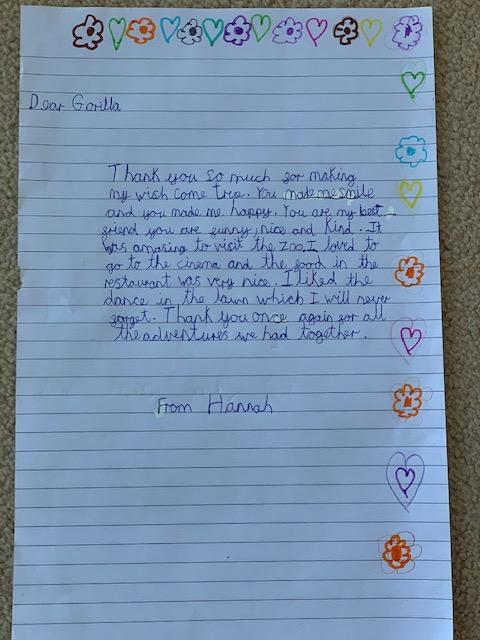 Dear Gorilla
Thank you so much for making
my wish come true. You made me smile
and you made me happy. You are my best
friend you are funny, nice and kind. It
was amazing to visit the zoo. I loved to
go to the cinema and the food in the
restaurant was very nice. I liked the
dance in the lawn which I will never
forget. Thank you once again for all
the adventures we had together.
From Hannah